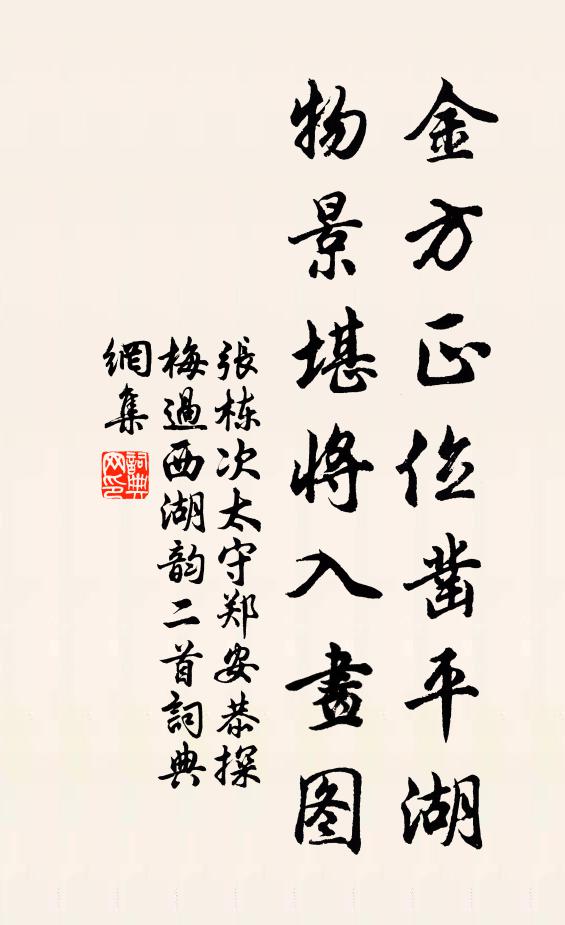 金方正位凿平湖
物景堪將入畫图
張栋次太守郑安恭探
梅過西湖韵二首詞典
網集
詞典
网印